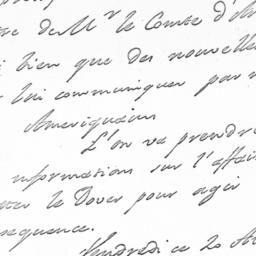 de Mr le Comte d'
bien que des nouvelle
lui communiquer par
Ameriquains
L'on va prendre
informations sur l'affai
le Dover pour agir
sequence.
Vendredi ce 20